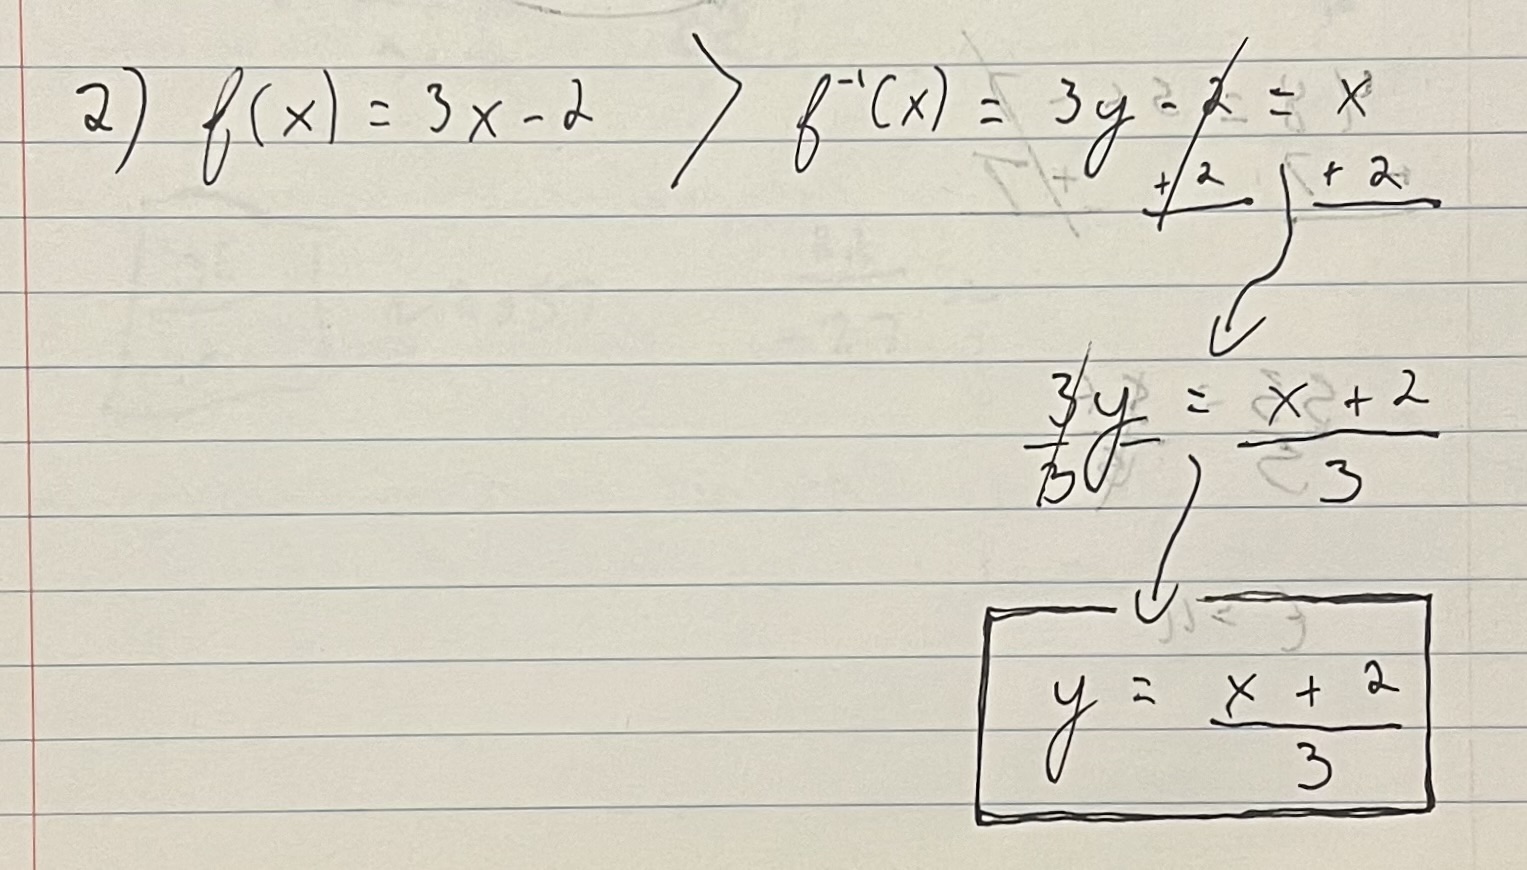 2) f(x) = 3x - 2 > f⁻¹(x) = 3y - 2 = x
+ 2 + 2
3y = x + 2
3 3
y = x + 2
3